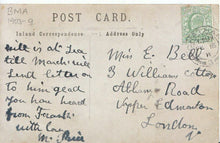 BMA
1903-9
POST CARD.
Inland Correspondence
Address Only
will is at Sea
till March. will
Send letter on
to him glad
you have heard
from Frank
with love
Miss E. Bell
3 Williams Cottages
Road
Upper Edmonton
London